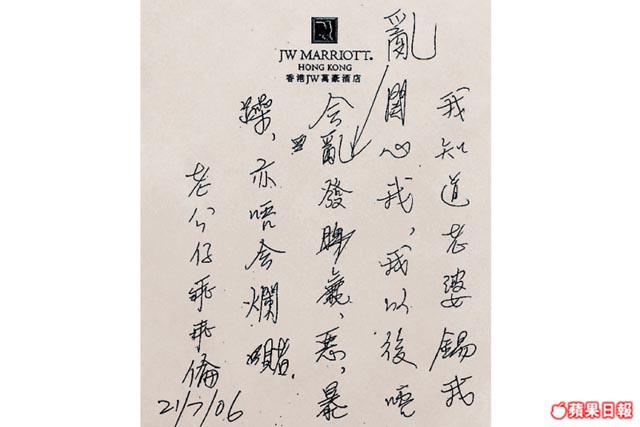 JW MARRIOTT®
HONG KONG
香港JW萬豪酒店
亂
我知道老婆錫我
關心我，我以後唔
会亂發脾氣，惡，暴
躁，亦唔会爛賭.
老公仔乖乖倫
21/7/06
蘋果日報